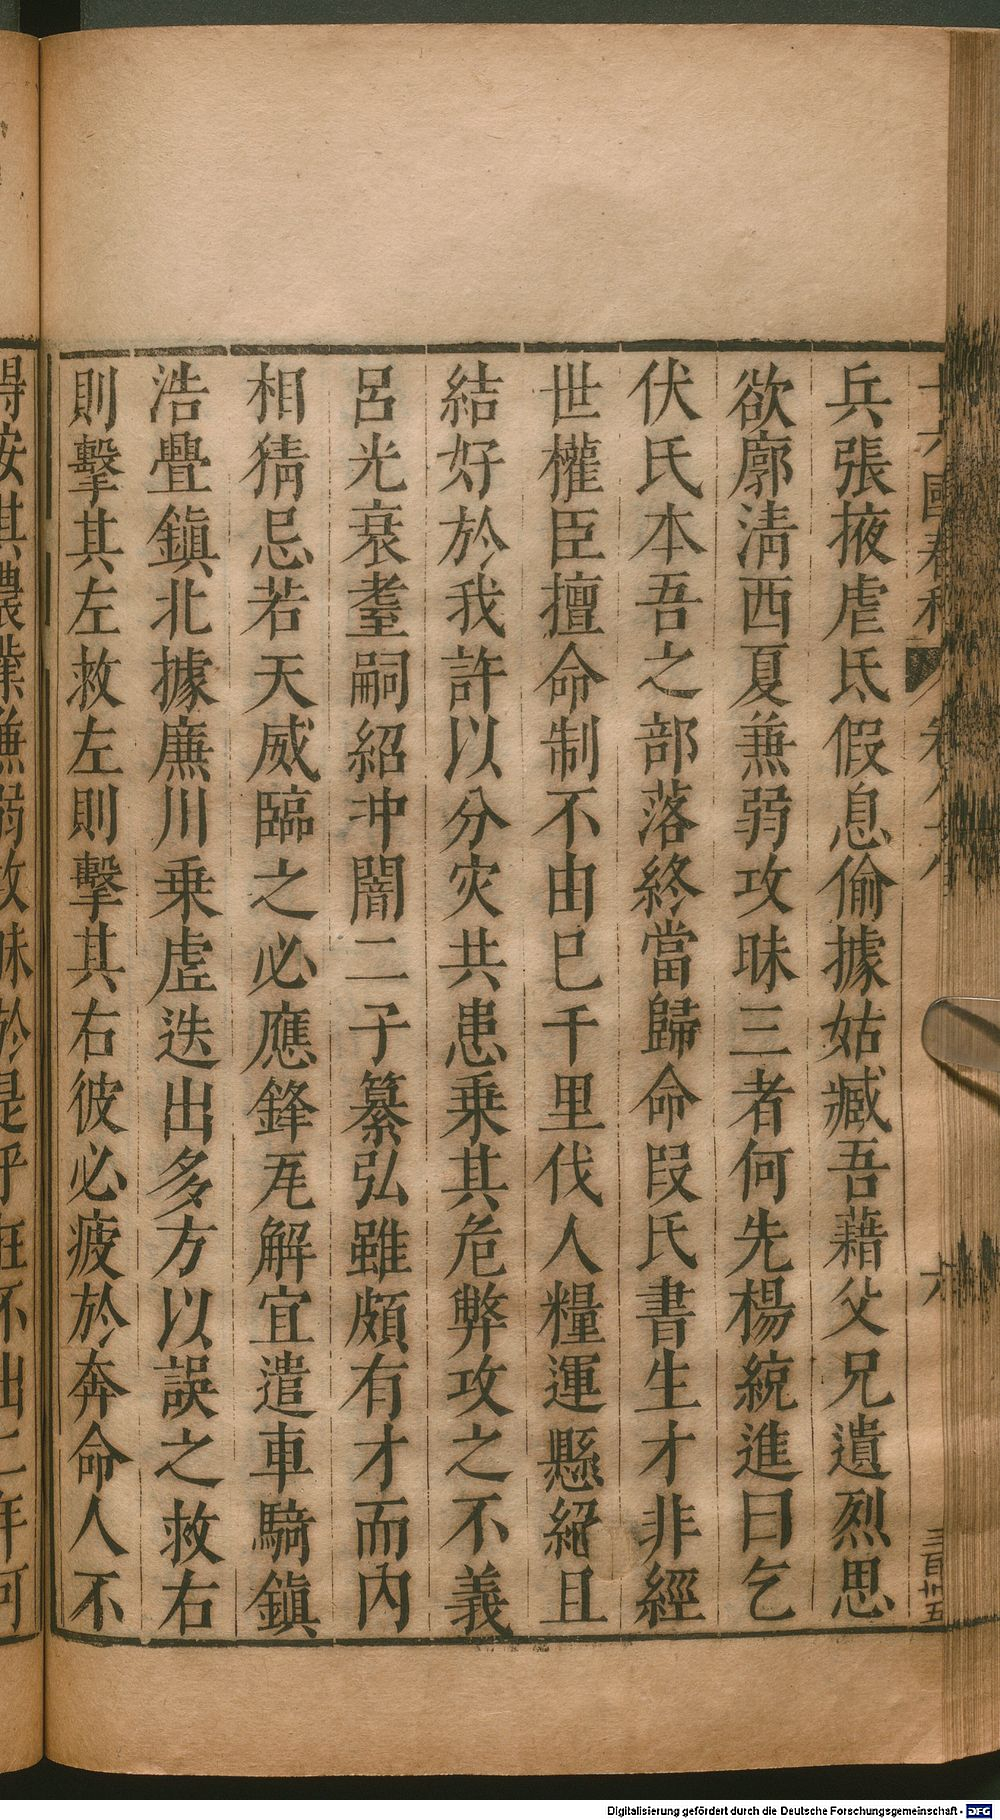 十六國春秋 卷八十八 六 三百廿五
兵張掖虐氐假息偷據姑臧吾藉父兄遺烈思
欲廓淸西夏兼弱攻昧三者何先楊統進曰乞
伏氏本吾之部落終當歸命段氏書生才非經
世權臣擅命制不由已千里伐人糧運懸絕且
結好於我許以分灾共患乗其危弊攻之不義
呂光衰耄嗣紹冲闇二子纂弘雖頗有才而內
相猜忌若天威臨之必應鋒瓦解宜遣車騎鎮
浩亹鎮北據廉川乗虛迭出多方以誤之救右
則擊其左救左則擊其右彼必疲於奔命人不
得安其農業兼弱攻昧於是乎在不出二年可
Digitalisierung gefördert durch die Deutsche Forschungsgemeinschaft - DFG